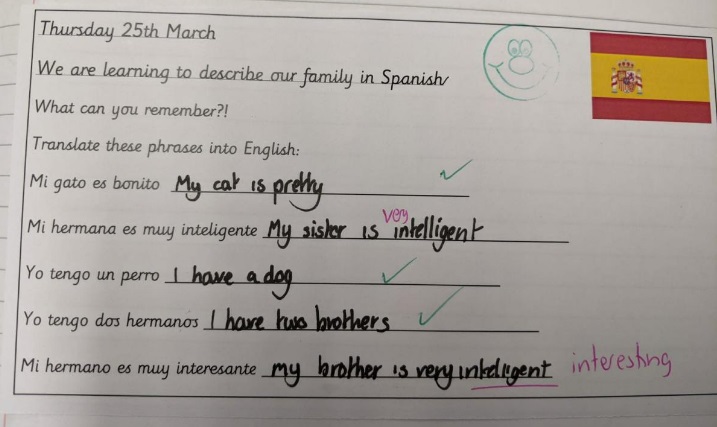 Thursday 25th March
We are learning to describe our family in Spanish
What can you remember?!
Translate these phrases into English:
Mi gato es bonito My cat is pretty
very
Mi hermana es muy inteligente My sister is intelligent
Yo tengo un perro I have a dog
Yo tengo dos hermanos I have two brothers
Mi hermano es muy interesante my brother is very intelligent interesting